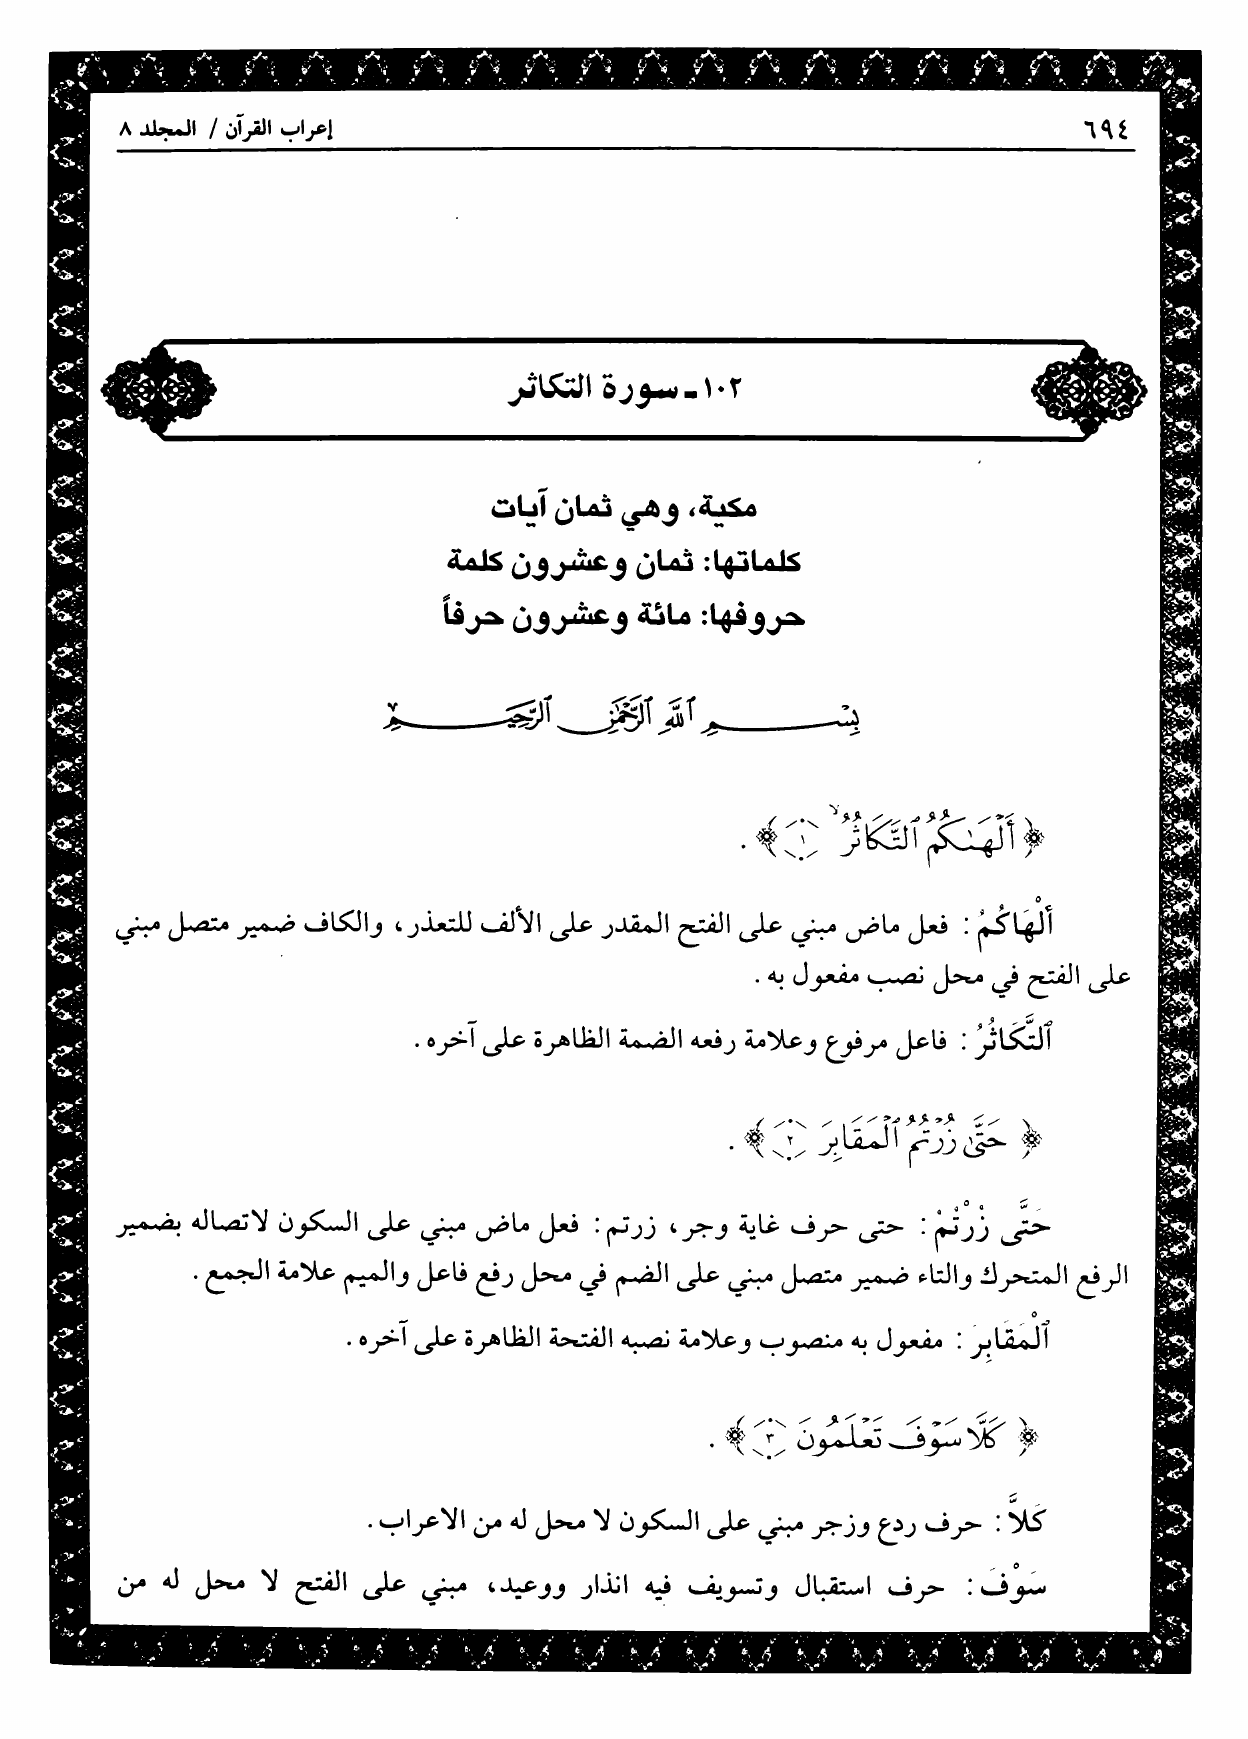 ٦٩٤
إعراب القرآن / المجلد ٨
١٠٢ ـ سورة التكاثر
مكية، وهي ثمان آيات
كلماتها: ثمان وعشرون كلمة
حروفها: مائة وعشرون حرفاً
بِسْمِ ٱللَّهِ ٱلرَّحْمَٰنِ ٱلرَّحِيمِ
﴿ أَلْهَىٰكُمُ ٱلتَّكَاثُرُ ۙ ١ ﴾ .
أَلْهَاكُمُ : فعل ماض مبني على الفتح المقدر على الألف للتعذر، والكاف ضمير متصل مبني
على الفتح في محل نصب مفعول به .
ٱلتَّكَاثُرُ : فاعل مرفوع وعلامة رفعه الضمة الظاهرة على آخره .
﴿ حَتَّىٰ زُرْتُمُ ٱلْمَقَابِرَ ٢ ﴾ .
حَتَّى زُرْتُمْ : حتى حرف غاية وجر، زرتم : فعل ماض مبني على السكون لاتصاله بضمير
الرفع المتحرك والتاء ضمير متصل مبني على الضم في محل رفع فاعل والميم علامة الجمع .
ٱلْمَقَابِرَ : مفعول به منصوب وعلامة نصبه الفتحة الظاهرة على آخره .
﴿ كَلَّا سَوْفَ تَعْلَمُونَ ٣ ﴾ .
كَلاَّ : حرف ردع وزجر مبني على السكون لا محل له من الاعراب .
سَوْفَ : حرف استقبال وتسويف فيه انذار ووعيد، مبني على الفتح لا محل له من